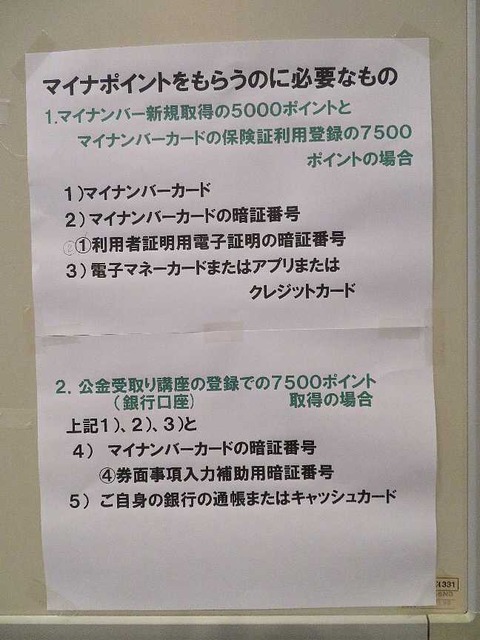 マイナポイントをもらうのに必要なもの
1.マイナンバー新規取得の5000ポイントと
マイナンバーカードの保険証利用登録の7500
ポイントの場合
1)マイナンバーカード
2)マイナンバーカードの暗証番号
①利用者証明用電子証明の暗証番号
3)電子マネーカードまたはアプリまたは
クレジットカード
2. 公金受取り講座の登録での7500ポイント
(銀行口座) 取得の場合
上記1)、2)、3)と
4) マイナンバーカードの暗証番号
④券面事項入力補助用暗証番号
5) ご自身の銀行の通帳またはキャッシュカード
331